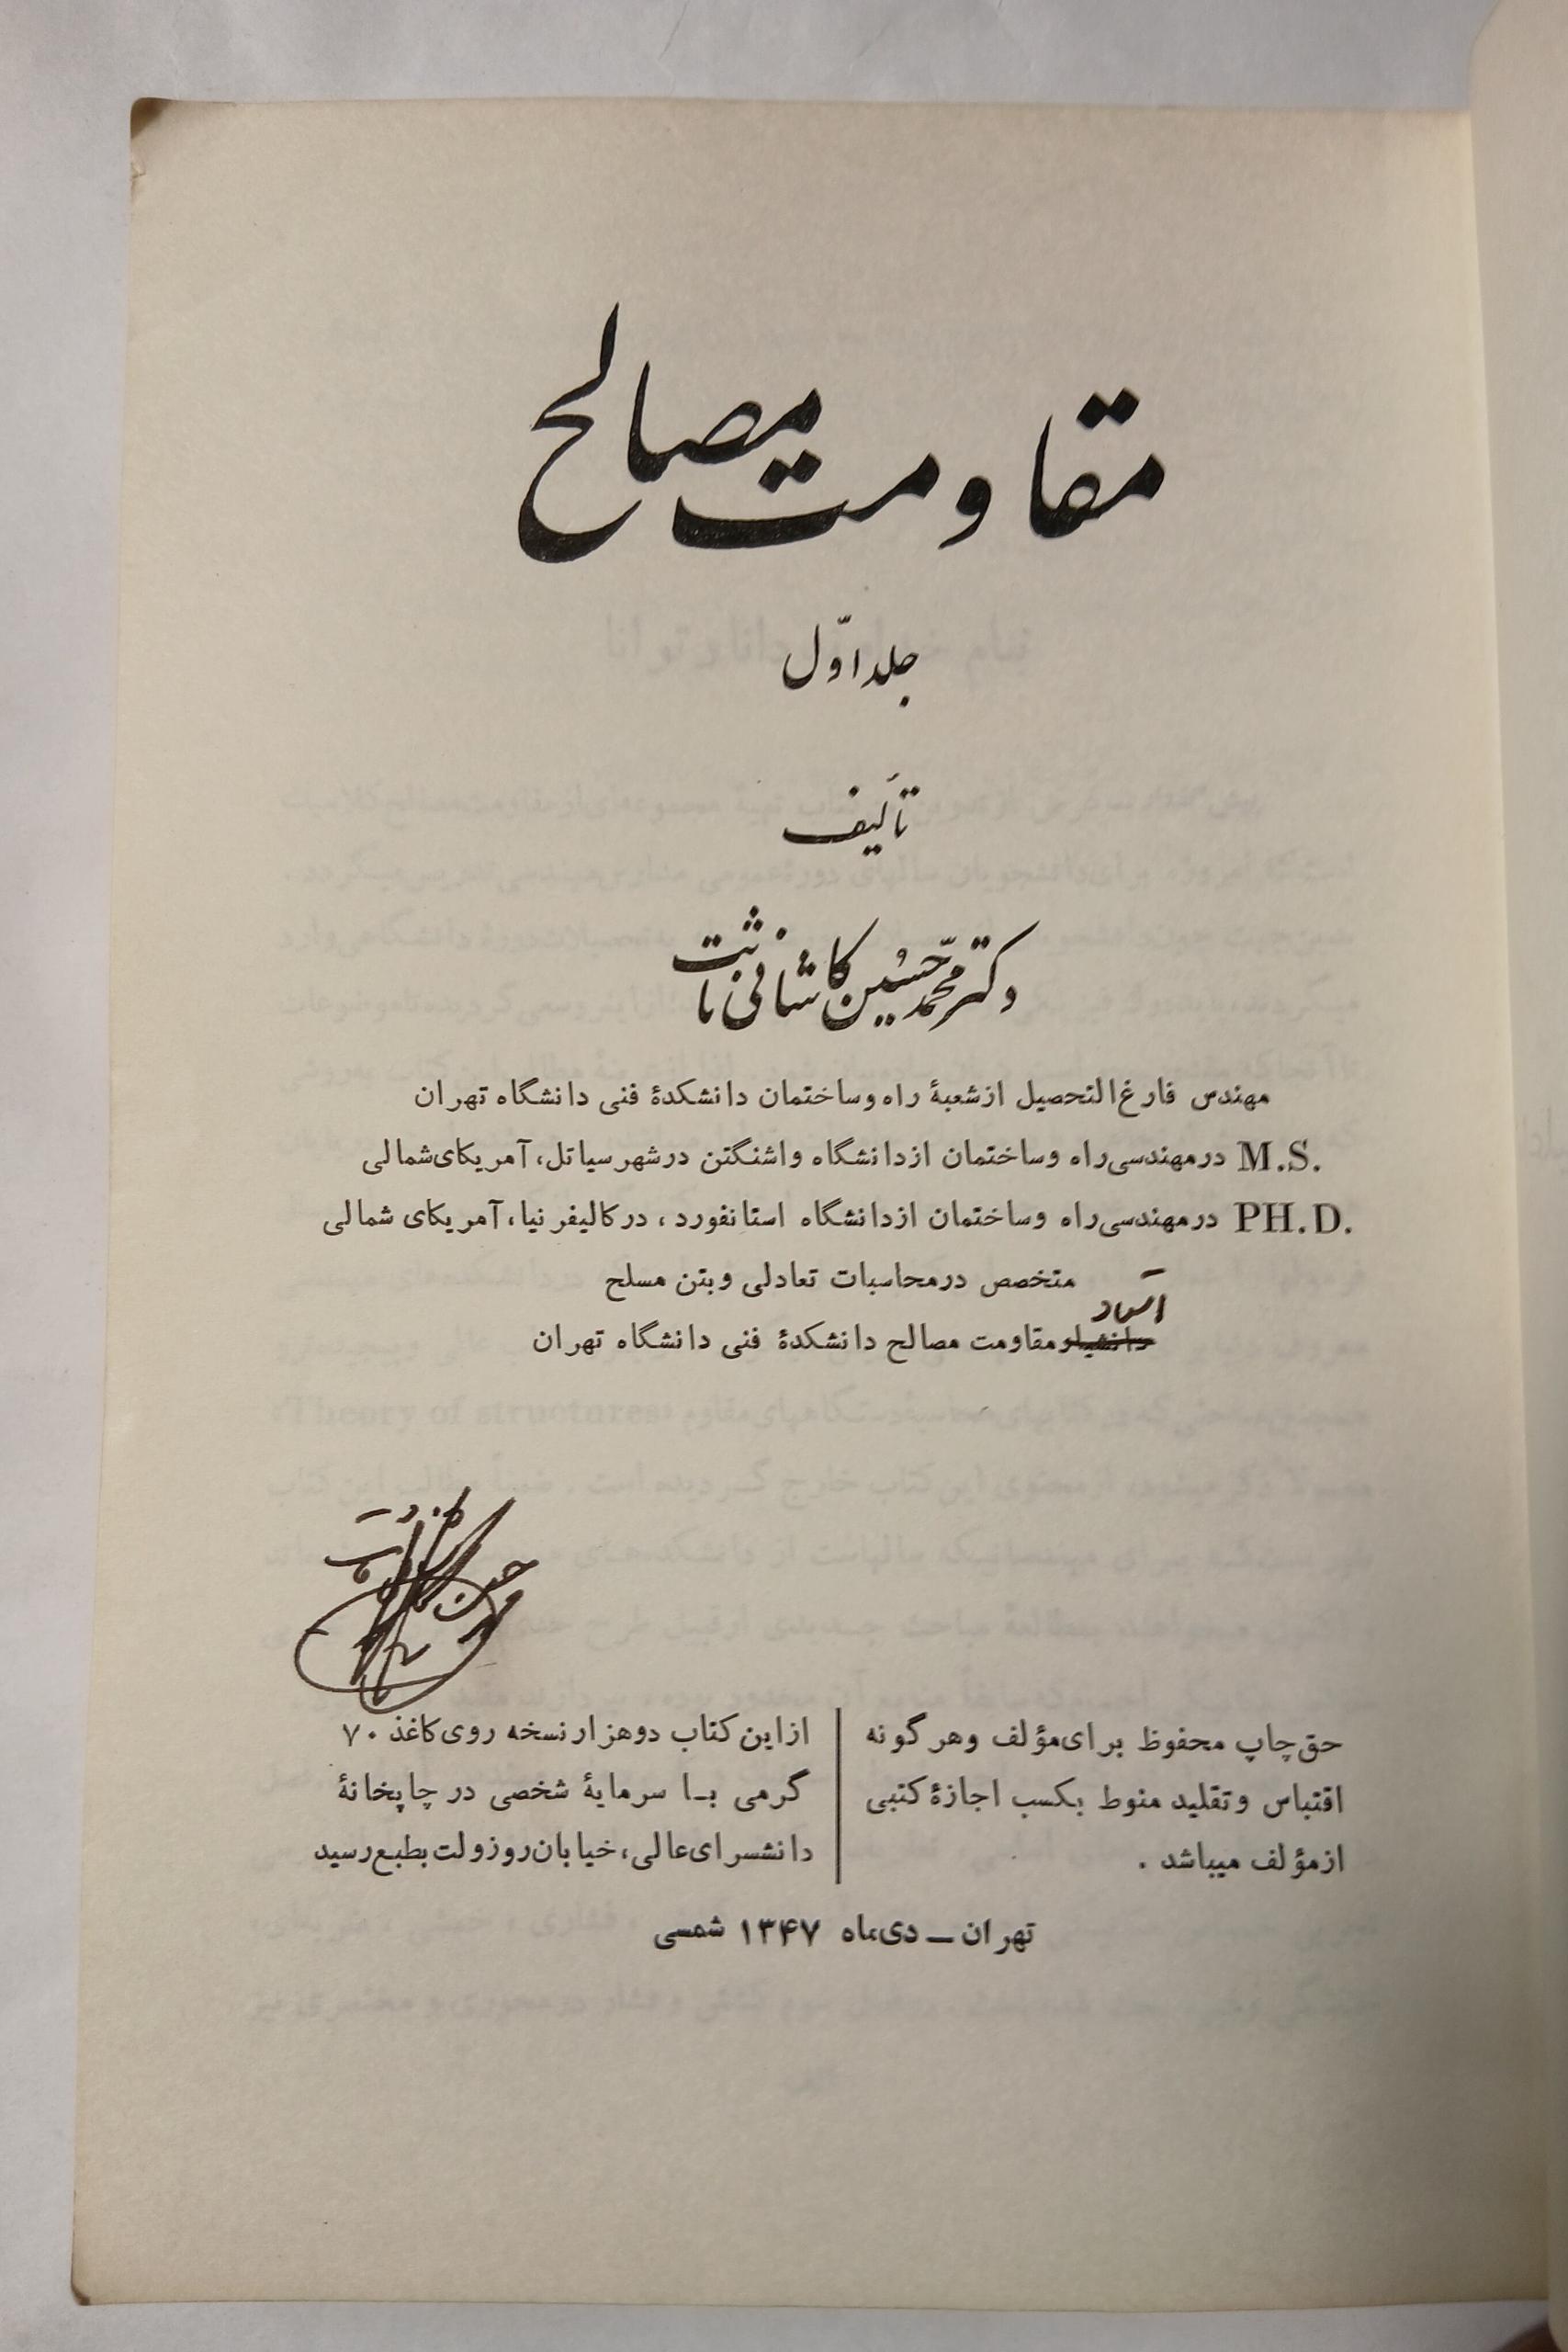 مقاومت مصالح
جلد اوّل
تألیف
دکتر محمّد حسین کاشانی ثابت
مهندس فارغ‌التحصیل از شعبهٔ راه و ساختمان دانشکدهٔ فنی دانشگاه تهران
M.S. در مهندسی راه و ساختمان از دانشگاه واشنگتن در شهر سیاتل، آمریکای شمالی
PH.D. در مهندسی راه و ساختمان از دانشگاه استانفورد، در کالیفرنیا، آمریکای شمالی
متخصص در محاسبات تعادلی و بتن مسلح
استاد
دانشیار مقاومت مصالح دانشکدهٔ فنی دانشگاه تهران
حق چاپ محفوظ برای مؤلف و هر گونه
اقتباس و تقلید منوط بکسب اجازهٔ کتبی
از مؤلف میباشد .
از این کتاب دو هزار نسخه روی کاغذ ۷۰
گرمی بـا سرمایهٔ شخصی در چاپخانهٔ
دانشسرای عالی، خیابان روزولت بطبع رسید
تهران ــ دی‌ماه ۱۳۴۷ شمسی